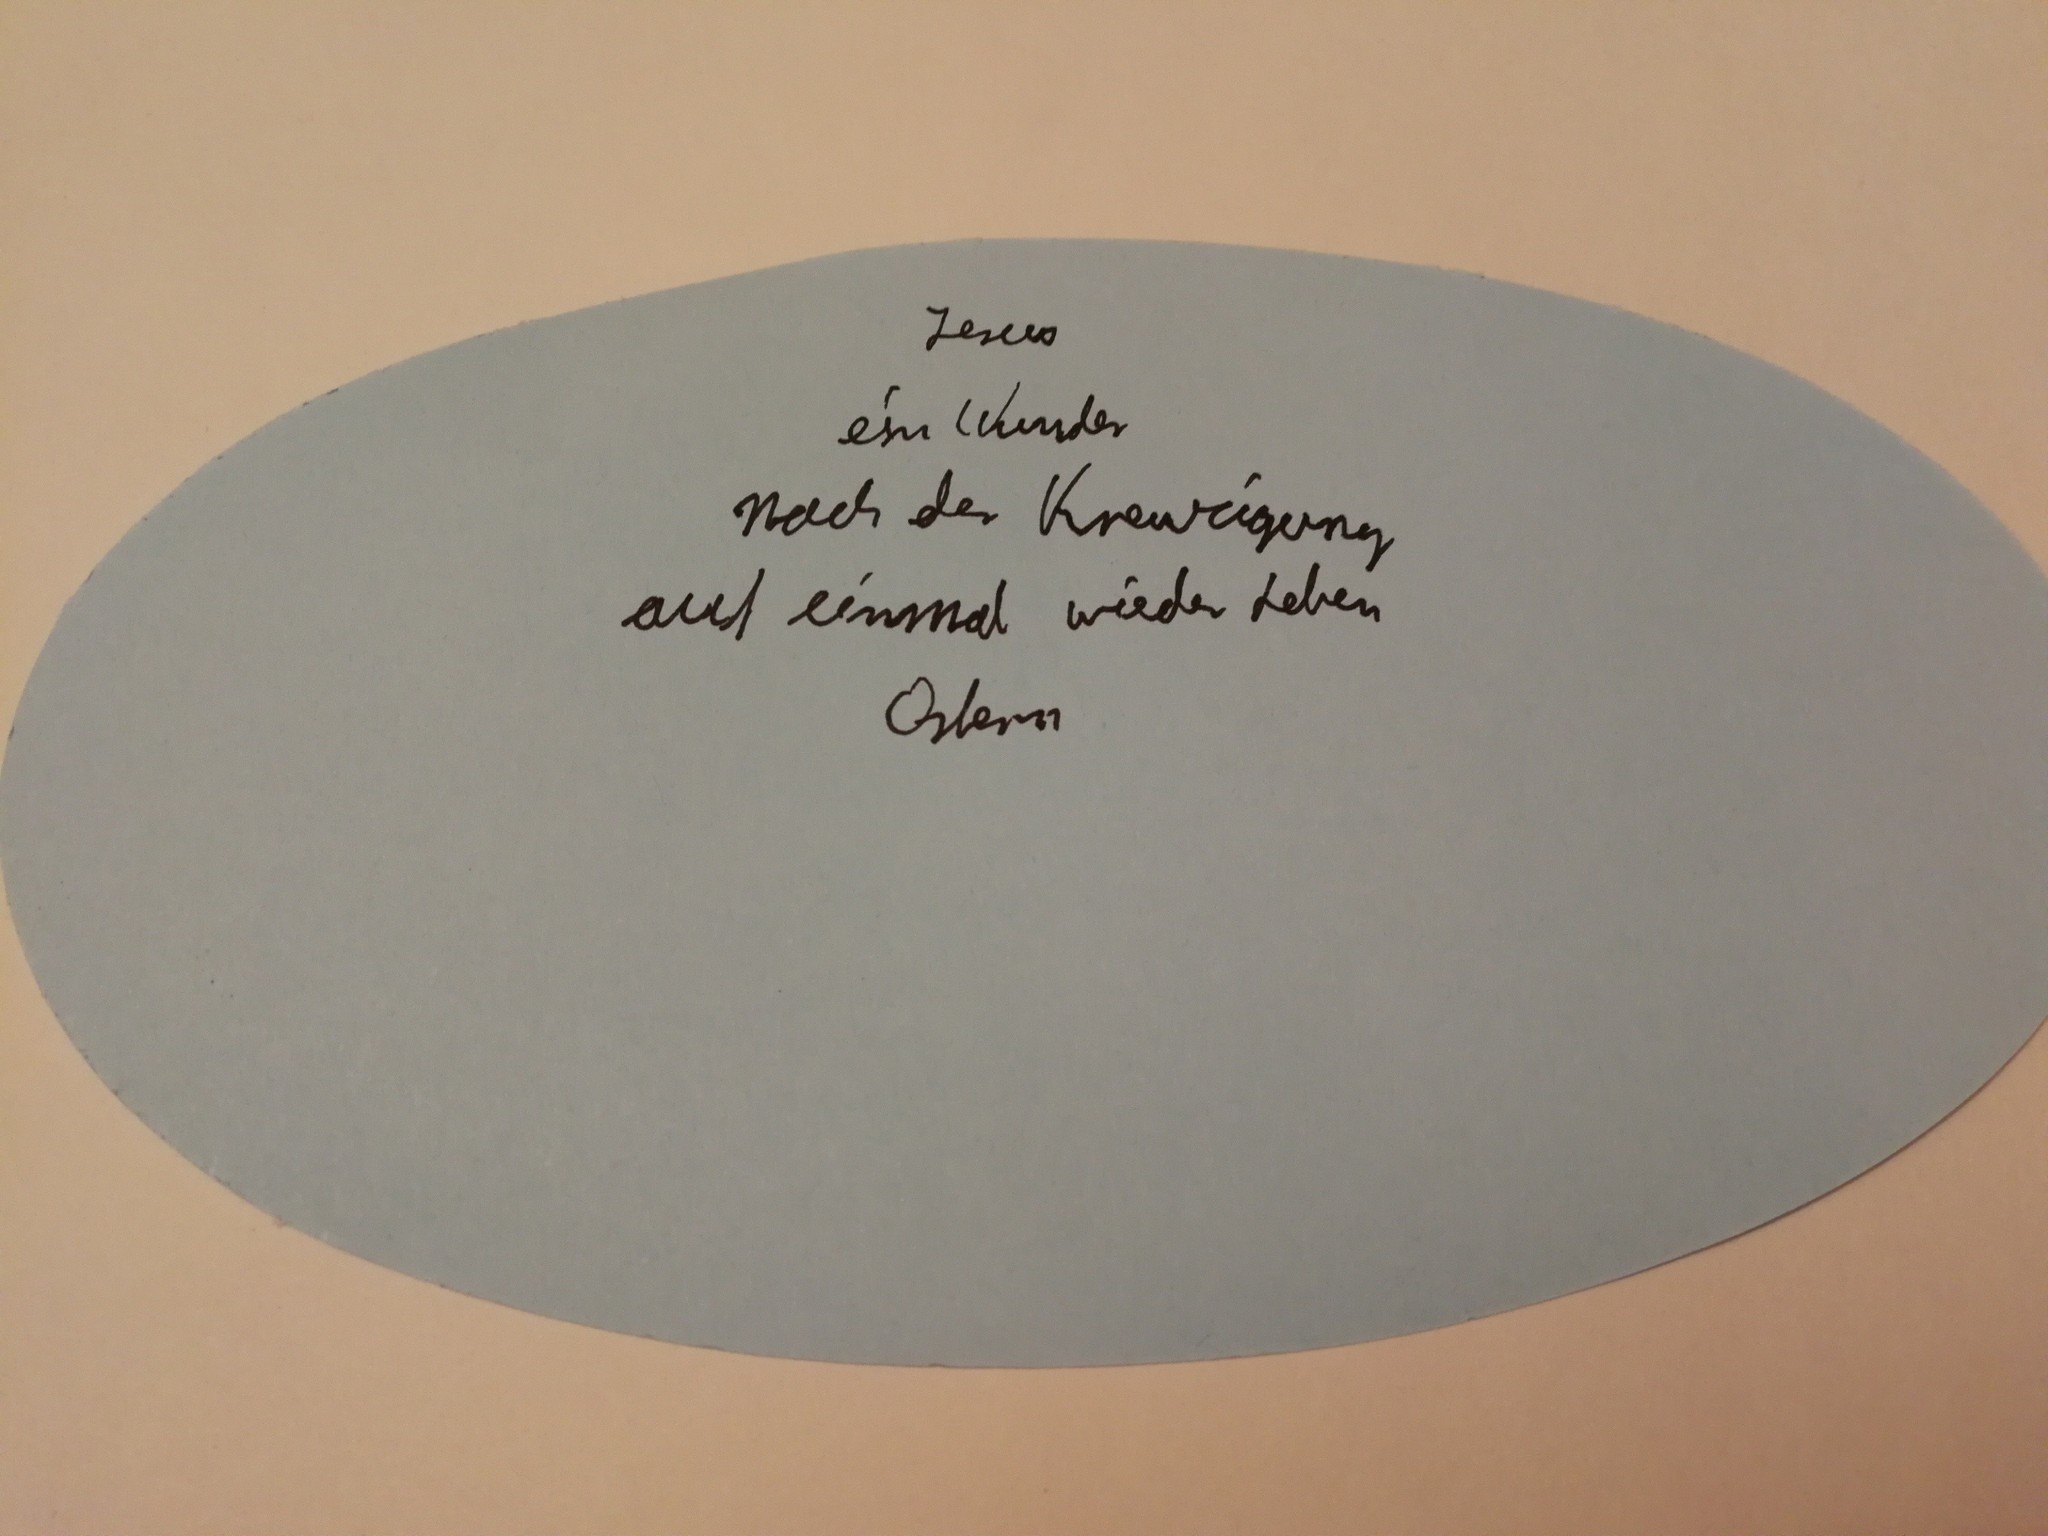 Jesus
ein Wunder
nach der Kreuzigung
auf einmal wieder Leben
Ostern